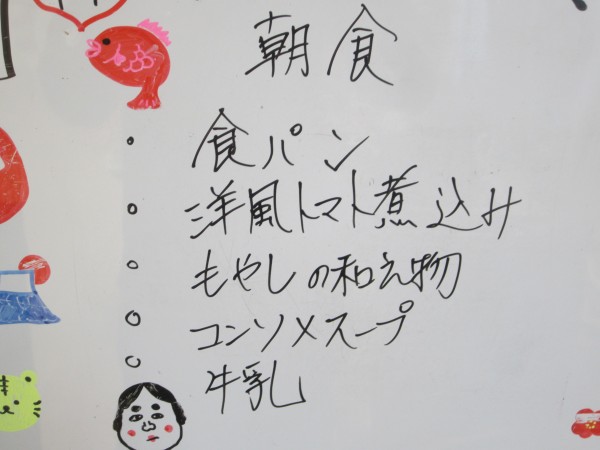 朝食
○ 食パン
○ 洋風トマト煮込み
○ もやしの和え物
○ コンソメスープ
○ 牛乳